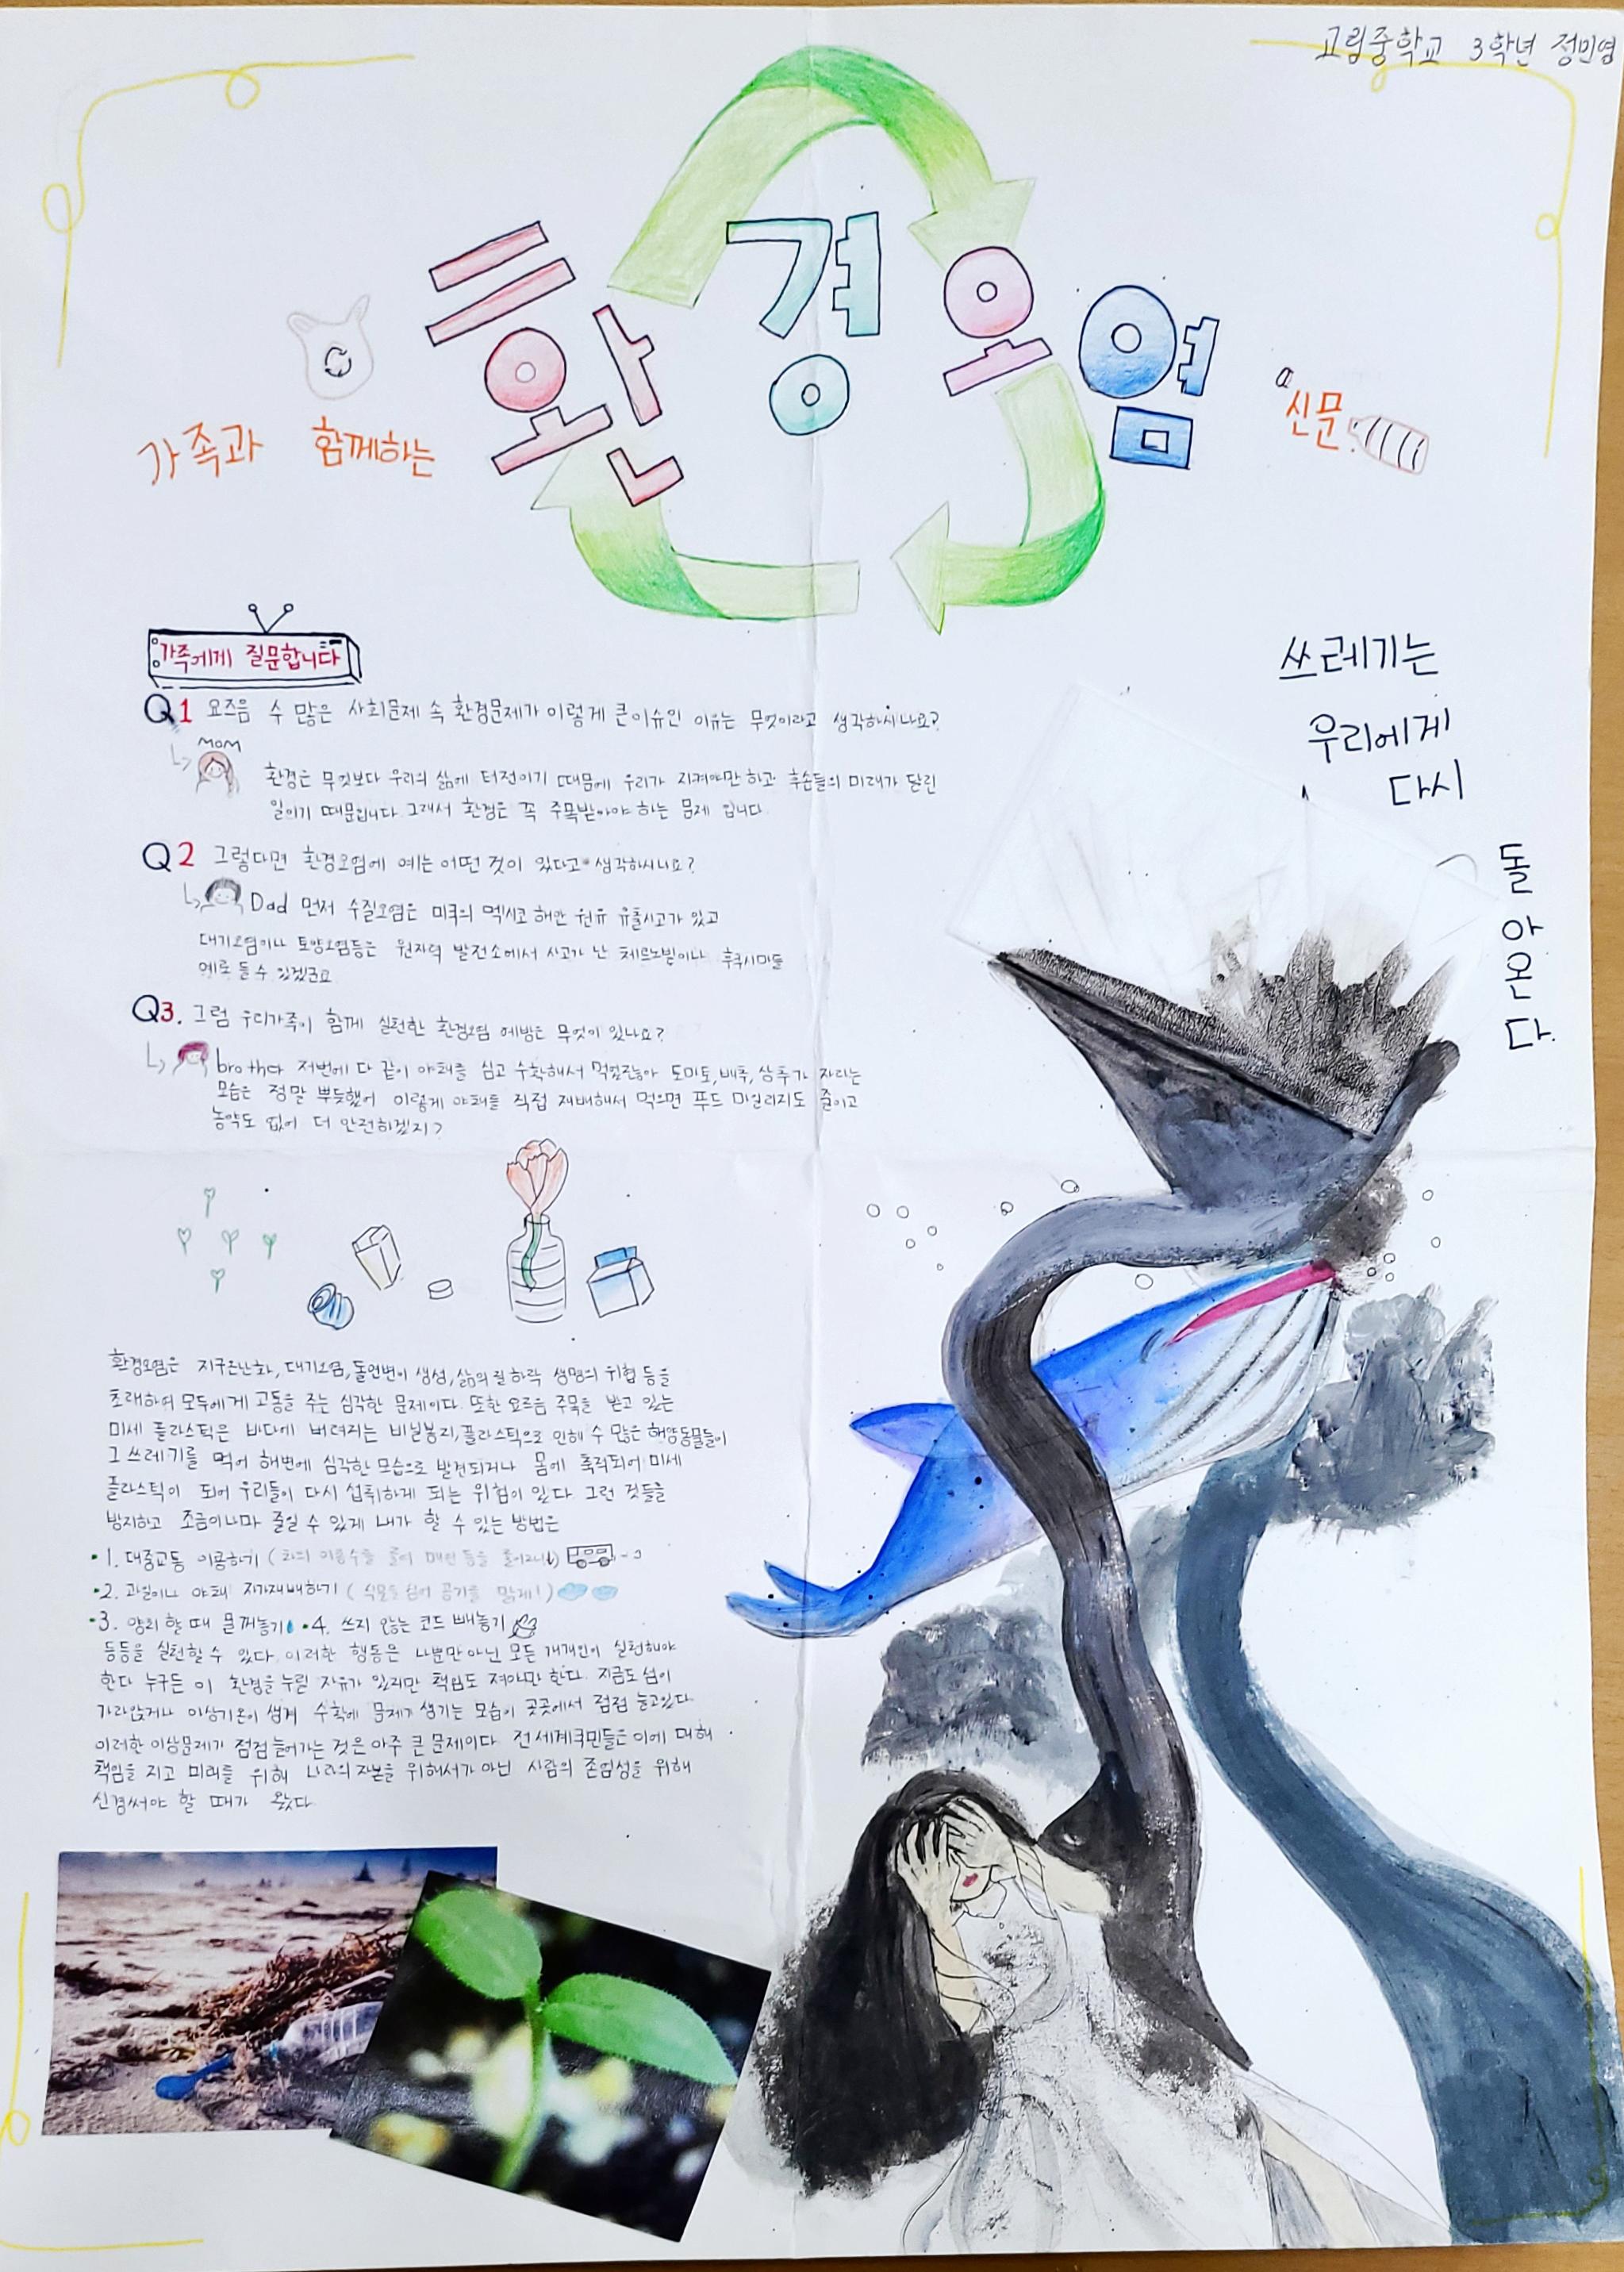 고림중학교 3학년 정민영
가족과 함께하는 환경오염 신문
가족에게 질문합니다
Q1 요즈음 수 많은 사회문제 속 환경문제가 이렇게 큰이슈인 이유는 무엇이라고 생각하시나요?
MOM
환경은 무엇보다 우리의 삶에 터전이기 때문에 우리가 지켜야만하고 후손들의 미래가 달린
일이기 때문입니다. 그래서 환경은 꼭 주목받아야 하는 문제 입니다.
Q2 그렇다면 환경오염에 예는 어떤 것이 있다고 생각하시나요?
Dad 먼저 수질오염은 미국의 멕시코 해안 원유 유출사고가 있고
대기오염이나 토양오염등은 원자력 발전소에서 사고가 난 체르노빌이나 후쿠시마를
예로 들 수 있겠군요
Q3. 그럼 우리가족이 함께 실천한 환경오염 예방은 무엇이 있나요?
brother 저번에 다 같이 야채를 심고 수확해서 먹었잖아 토마토, 배추, 상추가 자라는
모습은 정말 뿌듯했어 이렇게 야채를 직접 재배해서 먹으면 푸드 마일리지도 줄이고
농약도 없어 더 안전하겠지?
쓰레기는
우리에게
다시
돌
아
온
다.
환경오염은 지구온난화, 대기오염, 돌연변이 생성, 삶의 질 하락 생명의 위협 등을
초래하여 모두에게 고통을 주는 심각한 문제이다. 또한 요즈음 주목을 받고 있는
미세 플라스틱은 바다에 버려지는 비닐봉지, 플라스틱으로 인해 수 많은 해양동물들이
그 쓰레기를 먹어 해변에 심각한 모습으로 발견되거나 몸에 축적되어 미세
플라스틱이 되어 우리들이 다시 섭취하게 되는 위험이 있다. 그런 것들을
방지하고 조금이나마 줄일 수 있게 내가 할 수 있는 방법은
1. 대중교통 이용하기 (차의 이용수를 줄여 매연 등을 줄이고!)
2. 과일이나 야채 자가재배하기 (식물을 심어 공기를 맑게!)
3. 양치 할 때 물꺼놓기 4. 쓰지 않는 코드 빼놓기
등등을 실천할 수 있다. 이러한 행동은 나뿐만 아닌 모든 개개인이 실천해야
한다 누구든 이 환경을 누릴 자유가 있지만 책임도 져야만 한다. 지금도 섬이
가라앉거나 이상기온이 생겨 수확에 문제가 생기는 모습이 곳곳에서 점점 늘고있다.
이러한 이상문제가 점점 늘어가는 것은 아주 큰 문제이다. 전 세계국민들은 이에 대해
책임을 지고 미래를 위해 나라의 자본을 위해서가 아닌 사람의 존엄성을 위해
신경써야 할 때가 왔다.